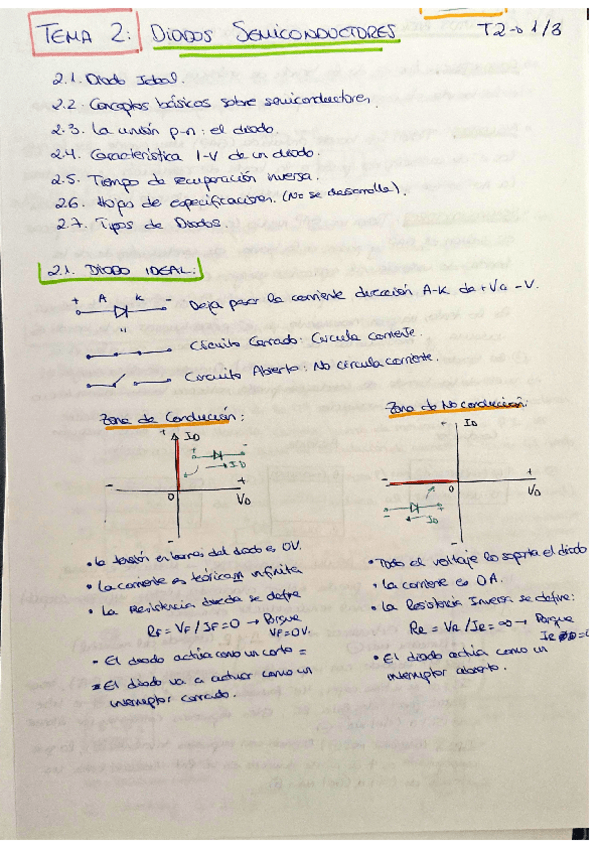 TEMA 2: DIODOS SEMICONDUCTORES T2→1/3
2.1. Diodo Ideal.
2.2. Conceptos básicos sobre semiconductores.
2.3. La unión p-n: el diodo.
2.4. Característica I-V de un diodo.
2.5. Tiempo de recuperación inversa.
2.6. Hojas de especificaciones. (No se desarrolla).
2.7. Tipos de Diodos.
2.1. DIODO IDEAL:
+ A K - Deja pasar la corriente dirección A-K de +V a -V.
"
Circuito Cerrado: Circula corriente.
Circuito Abierto: No circula corriente.
Zona de Conducción: Zona de No conducción:
+ ID + ID
+ - ID
- 0 + VD - 0 + VD
- + ID
- -
• la tensión en bornes del diodo es 0V.
• La corriente es teóricam infinita
• La Resistencia directa se define
RF = VF / IF = 0 → Porque
VF = 0V.
• El diodo actúa como un corto =
= El diodo va a actuar como un
interruptor cerrado.
• Todo el voltaje lo soporta el diodo
• La corriente es 0A.
• La Resistencia Inversa se define:
RR = VR / IR = ∞ → Porque
IR = 0
• El diodo actúa como un
interruptor abierto.